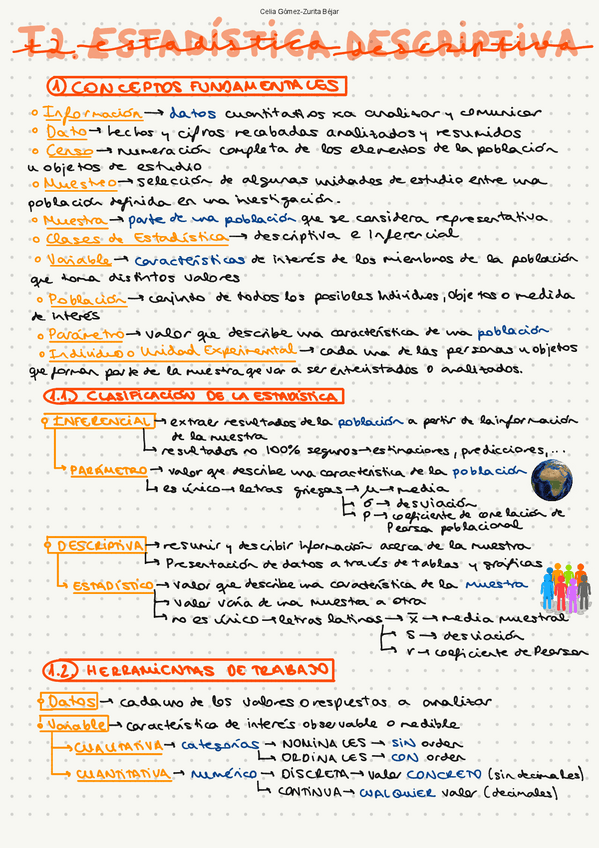 Celia Gómez-Zurita Béjar
T2. ESTADÍSTICA DESCRIPTIVA
1) CONCEPTOS FUNDAMENTALES
Información → datos cuantitativos xa analizar y comunicar
Dato → hechos y cifras recabadas analizados y resumidos
Censo → numeración completa de los elementos de la población
u objetos de estudio
Muestreo → selección de algunas unidades de estudio entre una
población definida en una investigación.
Muestra → parte de una población que se considera representativa
Clases de Estadística → descriptiva e Inferencial
Variable → características de interés de los miembros de la población
que toma distintos valores
Población → conjunto de todos los posibles individuos, objetos o medida
de interés
Parámetro → valor que describe una característica de una población
Individuo o Unidad Experimental → cada una de las personas u objetos
que forman parte de la muestra que van a ser entrevistados o analizados.
1.1.) CLASIFICACIÓN DE LA ESTADÍSTICA
INFERENCIAL → extraer resultados de la población a partir de la información
de la muestra
resultados no 100% seguros → estimaciones, predicciones, ...
PARÁMETRO → valor que describe una característica de la población
es único → letras griegas → μ → media
σ → desviación
ρ → coeficiente de correlación de
Pearson poblacional
DESCRIPTIVA → resumir y describir información acerca de la muestra
Presentación de datos a través de tablas y gráficas
ESTADÍSTICO → valor que describe una característica de la muestra
valor varía de una muestra a otra
no es único → letras latinas → x̄ → media muestral
S → desviación
r → coeficiente de Pearson
1.2.) HERRAMIENTAS DE TRABAJO
Datos → cada uno de los valores o respuestas a analizar
Variable → característica de interés observable o medible
CUALITATIVA → categorías → NOMINALES → SIN orden
ORDINALES → CON orden
CUANTITATIVA → numérico → DISCRETA → valor CONCRETO (sin decimales)
CONTINUA → CUALQUIER valor (decimales)